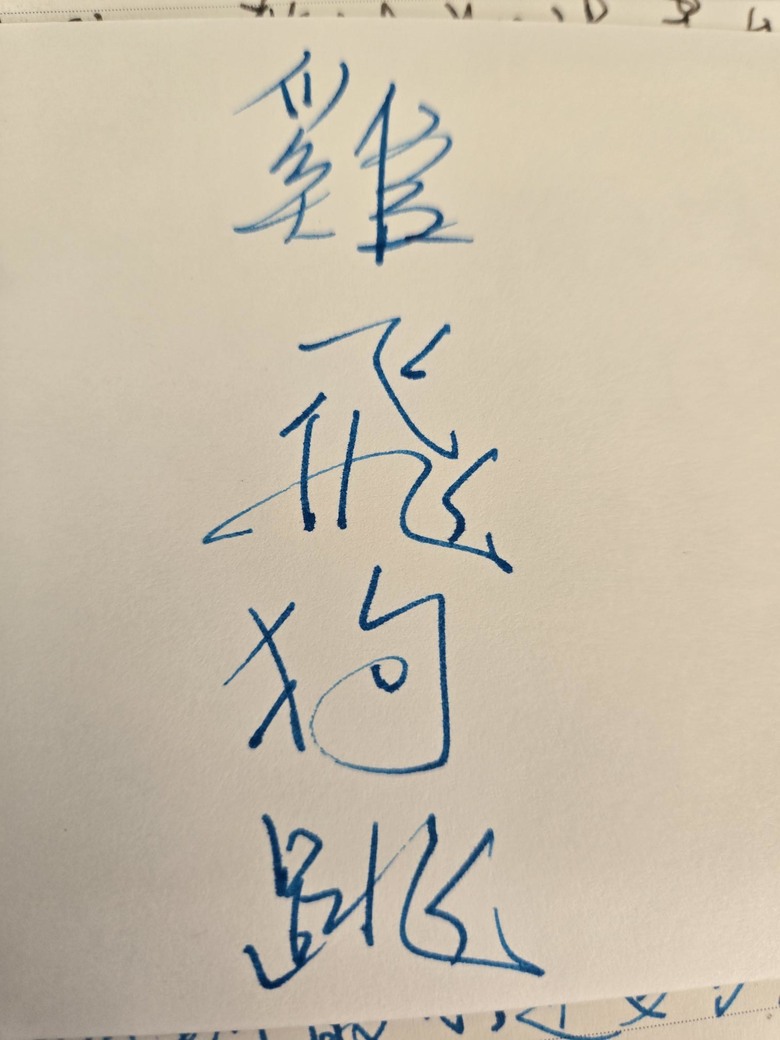 雞
飛
狗
跳